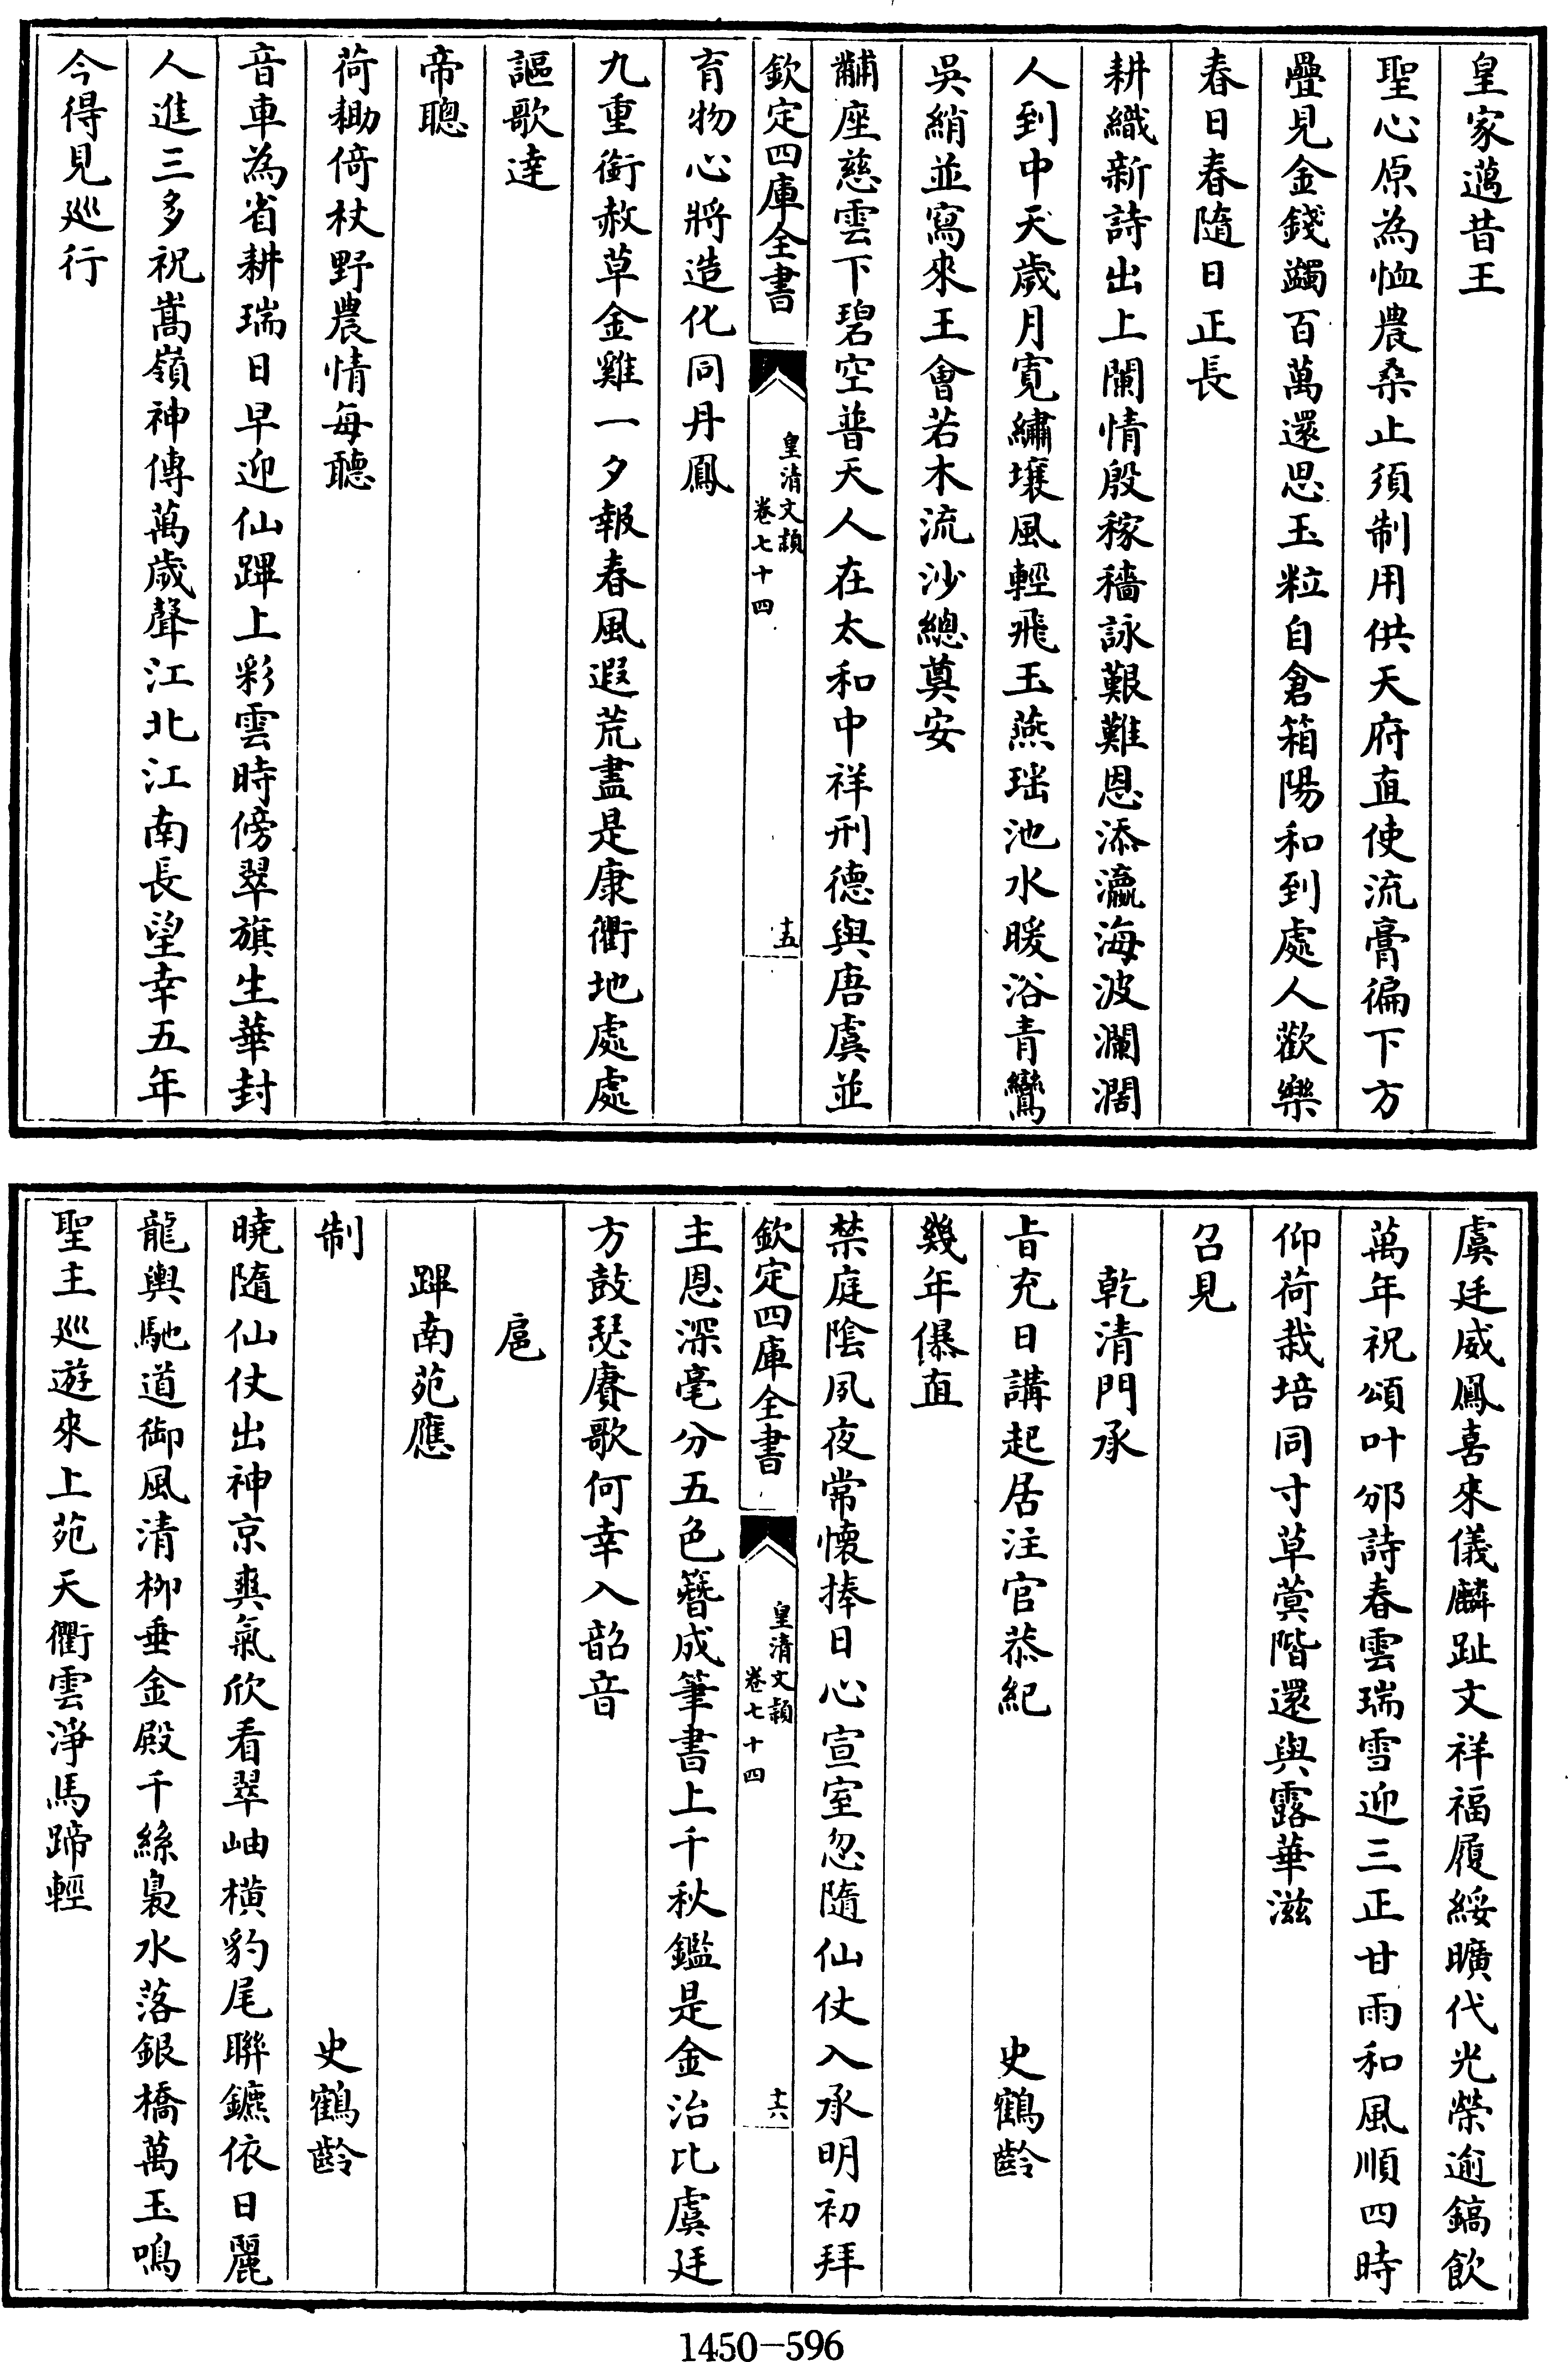 皇家邁昔王
聖心原為恤農桑止須制用供天府直使流膏徧下方
疊見金錢蠲百萬還思玉粒自倉箱陽和到處人歡樂
春日春隨日正長
耕織新詩出上闌情殷稼穡詠艱難恩添瀛海波瀾闊
人到中天歲月寬繡壤風輕飛玉燕瑤池水暖浴青鸞
吳綃並寫來王會若木流沙總奠安
黼座慈雲下碧空普天人在太和中祥刑德與唐虞並
欽定四庫全書
皇清文穎
卷七十四
十五
育物心將造化同丹鳳
九重銜赦草金雞一夕報春風遐荒盡是康衢地處處
謳歌達
帝聰
荷耡倚杖野農情每聽
音車為省耕瑞日早迎仙蹕上彩雲時傍翠旗生華封
人進三多祝嵩嶺神傳萬歲聲江北江南長望幸五年
今得見巡行
虞廷威鳳喜來儀麟趾文祥福履綏曠代光榮逾鎬飲
萬年祝頌叶邠詩春雲瑞雪迎三正甘雨和風順四時
仰荷栽培同寸草蓂階還與露華滋
召見
乾清門承
旨充日講起居注官恭紀
史鶴齡
幾年儤直
禁庭陰夙夜常懷捧日心宣室忽隨仙仗入承明初拜
欽定四庫全書
皇清文穎
卷七十四
十六
主恩深毫分五色簪成筆書上千秋鑑是金治比虞廷
方鼓瑟賡歌何幸入韶音
扈
蹕南苑應
制
史鶴齡
曉隨仙仗出神京爽氣欣看翠岫橫豹尾聯鑣依日麗
龍輿馳道御風清柳垂金殿千絲裊水落銀橋萬玉鳴
聖主巡遊來上苑天衢雲淨馬蹄輕
1450-596